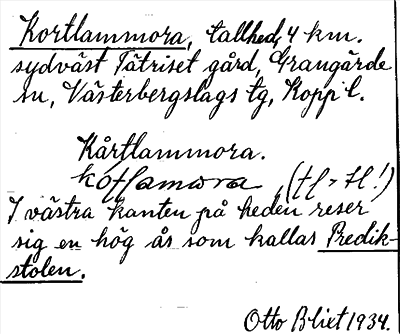 Kortlammora, tallhed, 4 km.
sydväst Tätriset gård, Grangärde
sn, Västerbergslags tg, Kopp l.
Kårtlammora.
(tl = tl!)
I västra kanten på heden reser
sig en hög ås som kallas Predik-
stolen.
Otto Blixt 1934.